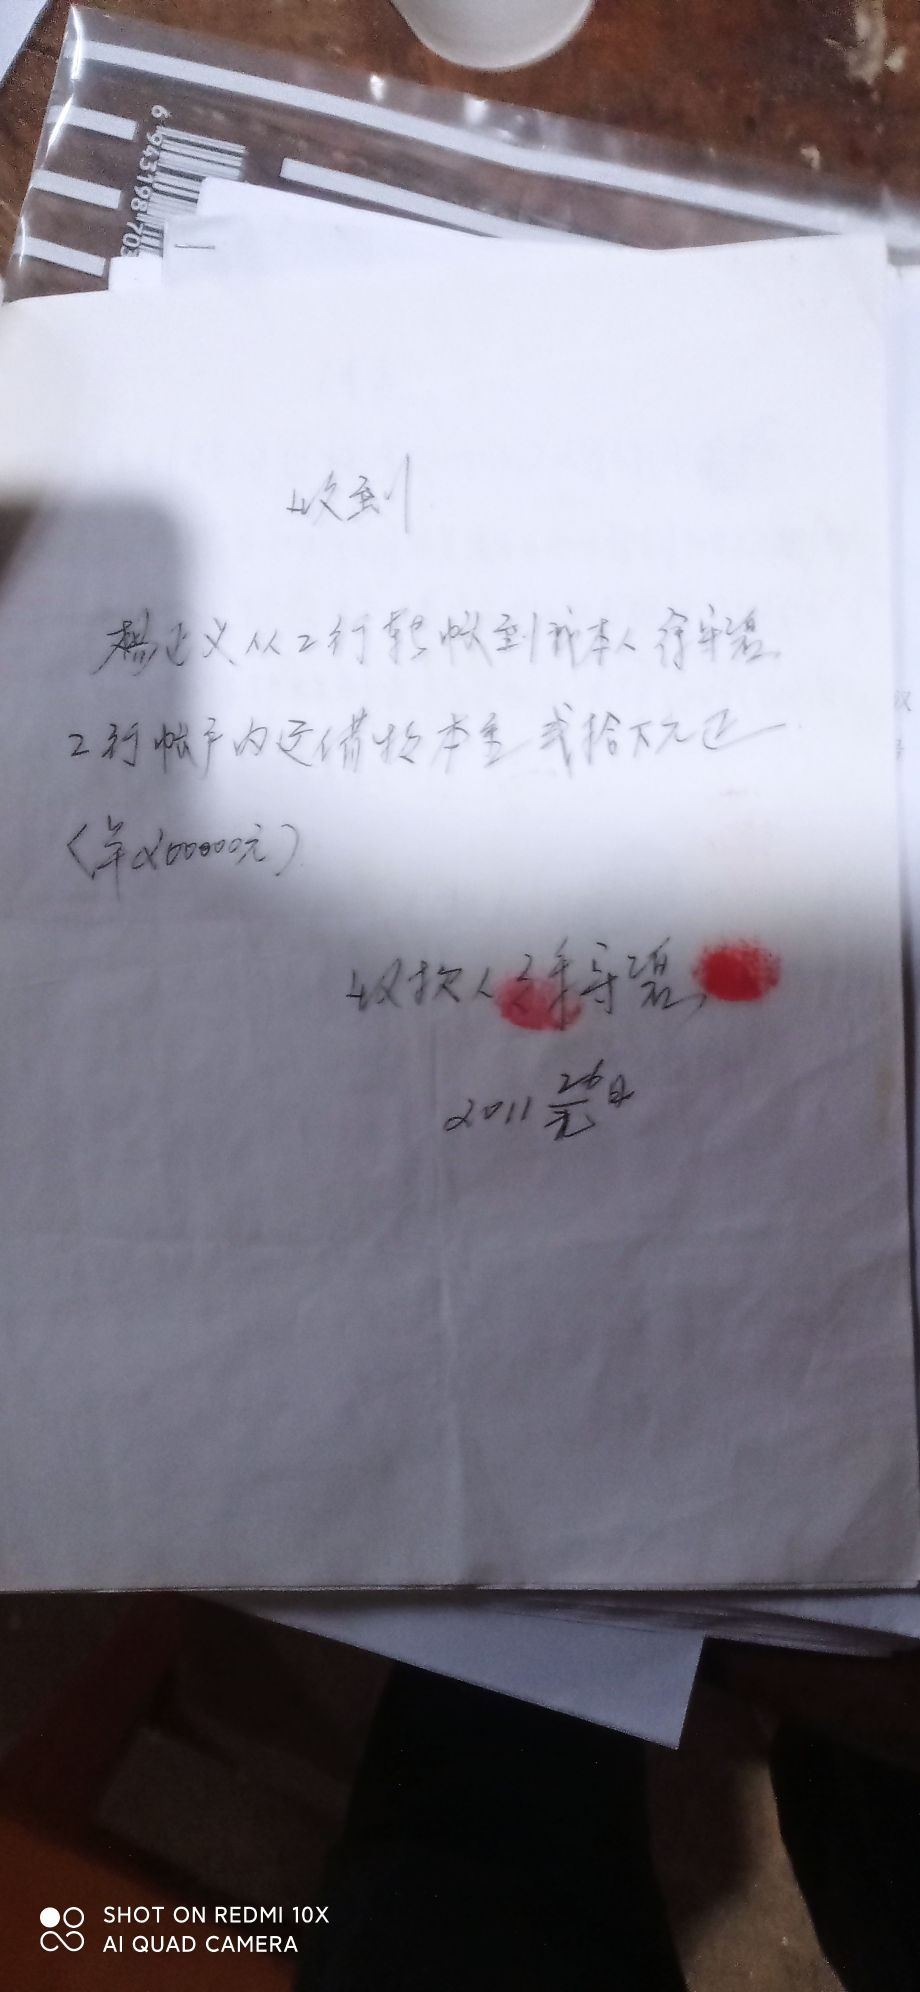 6 943198 703
收到
杨正义从工行转帐到我本人徐守碧
工行帐户内还借款本金贰拾万元正
(¥200000元)
收款人 徐守碧
2011 26/元 日
SHOT ON REDMI 10X
AI QUAD CAMERA